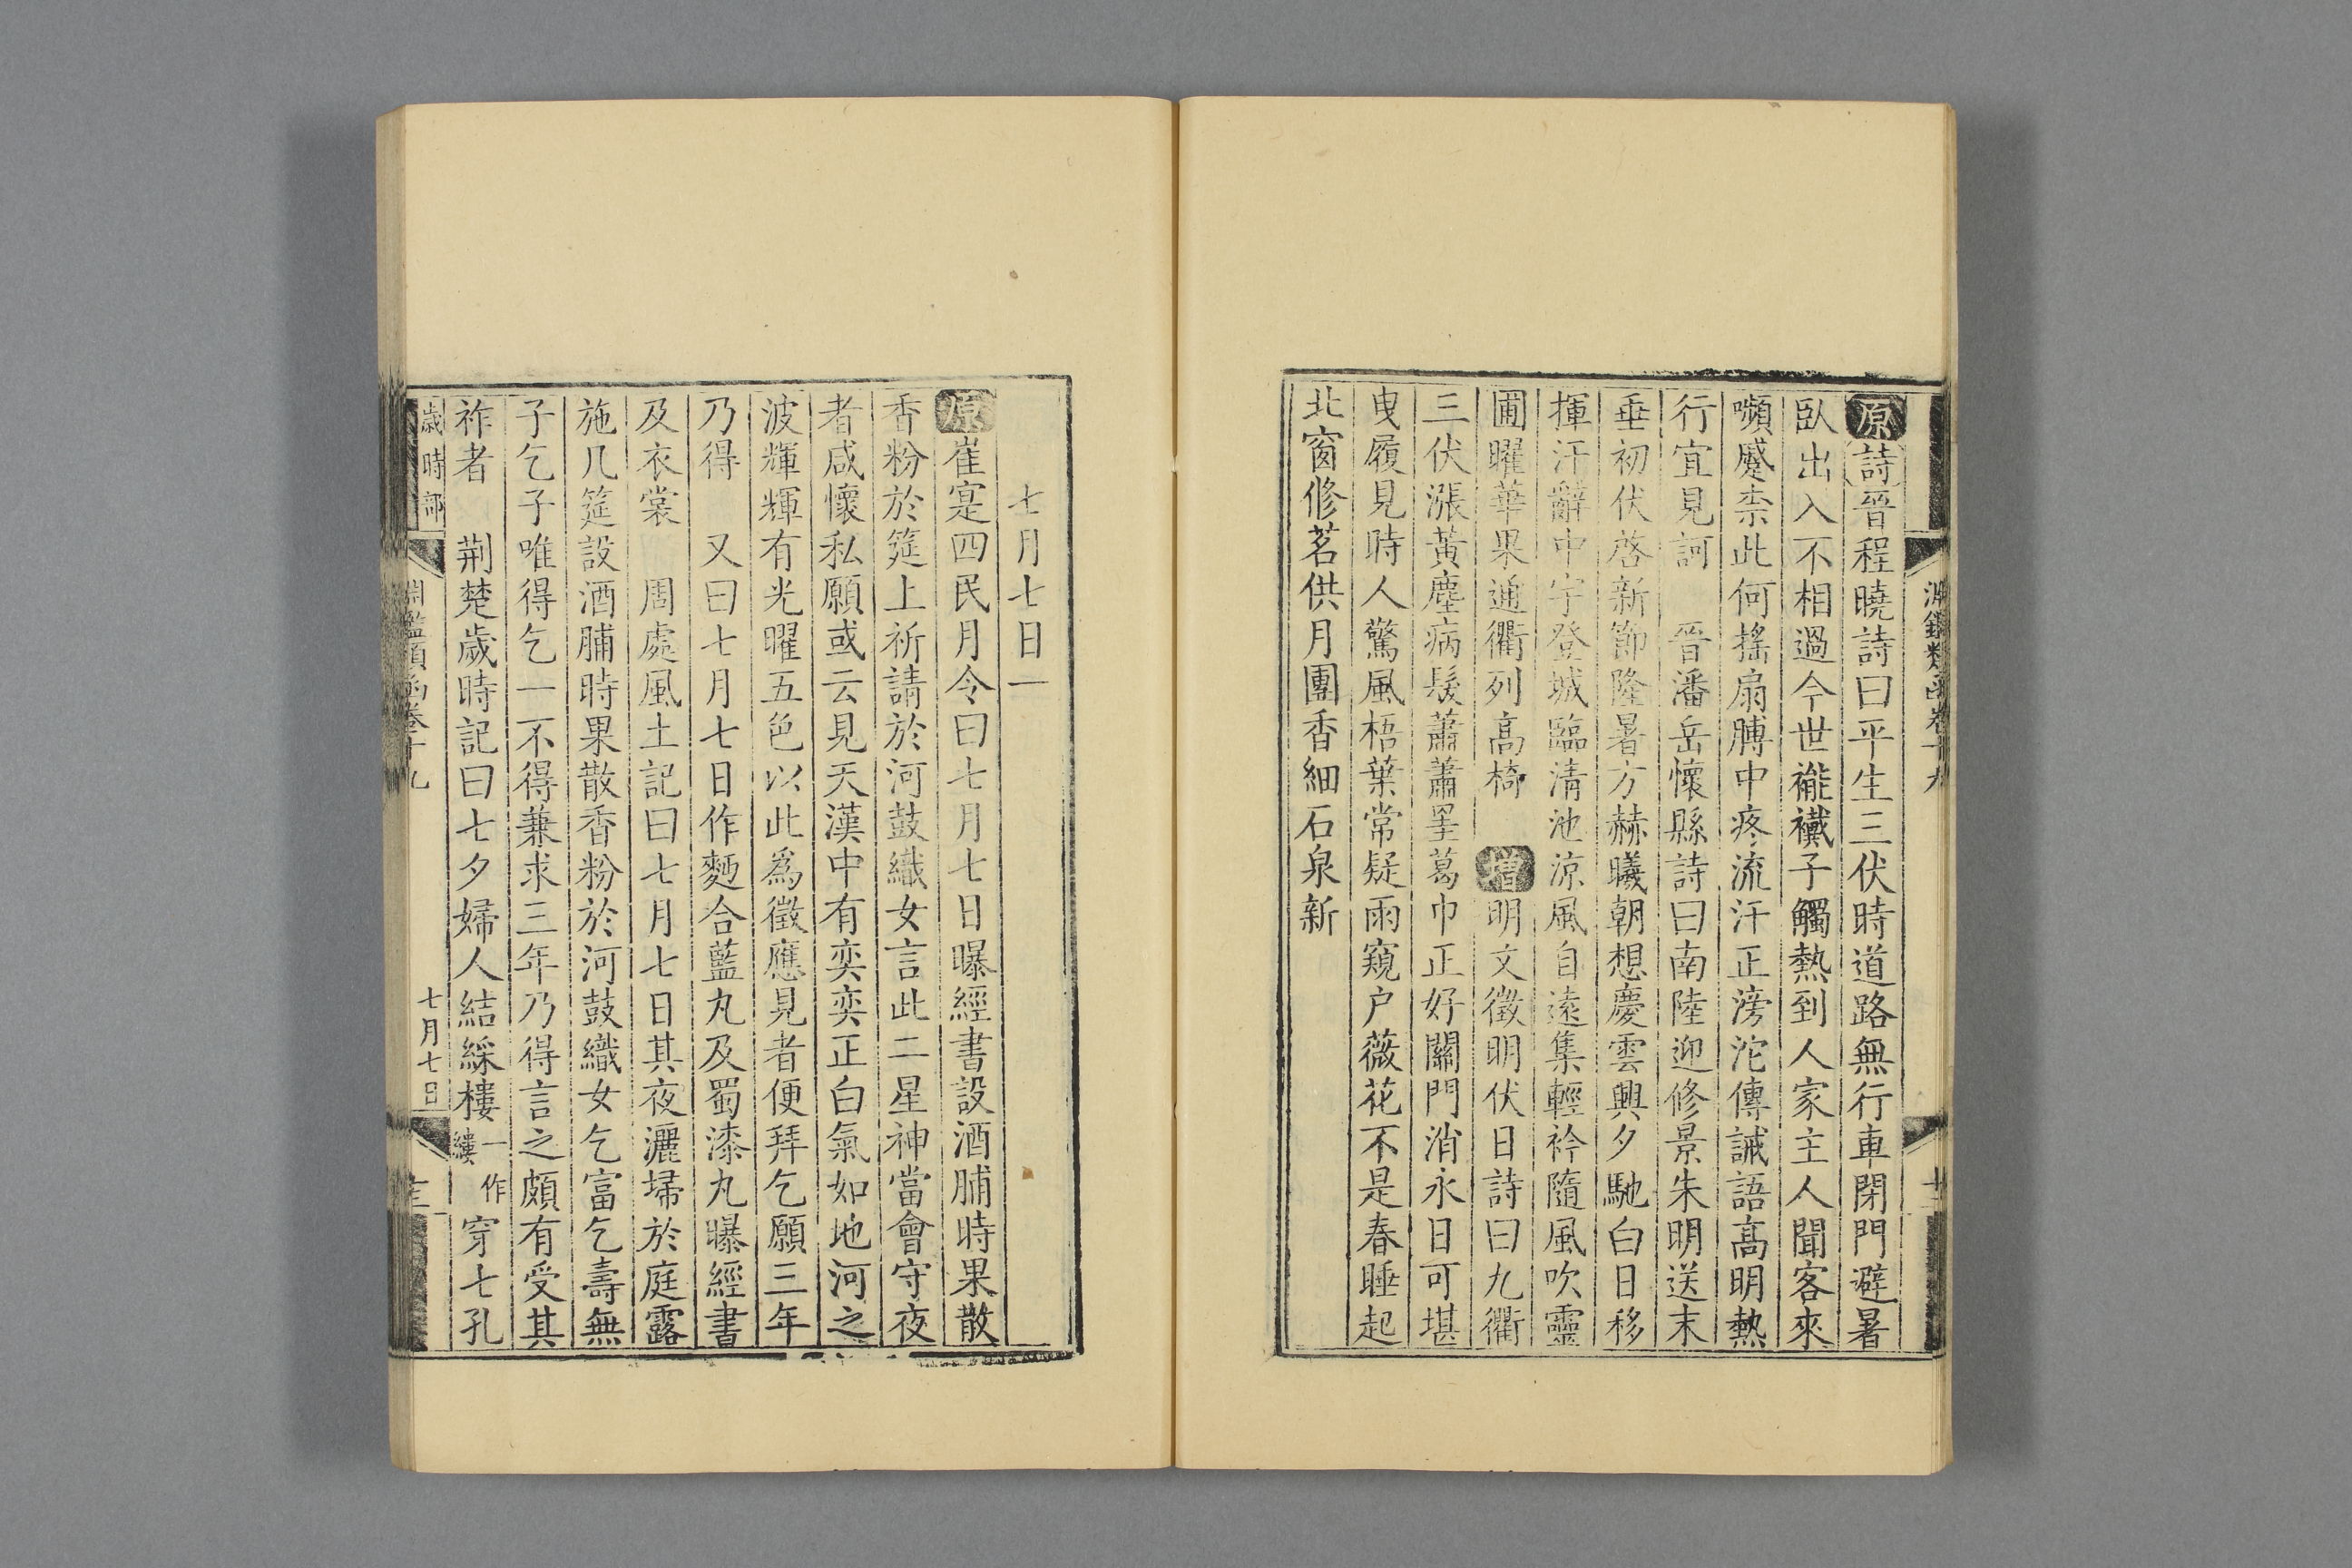 原詩晉程曉詩曰平生三伏時道路無行車閉門避暑
臥出入不相過今世褦襶子觸熱到人家主人聞客來
嚬蹙柰此何搖扇髆中疼流汗正滂沱傳誡語高明熱
行宜見訶　晉潘岳懷縣詩曰南陸迎修景朱明送末
垂初伏啓新節隆暑方赫曦朝想慶雲興夕馳白日移
揮汗辭中宇登城臨淸池涼風自遠集輕衿隨風吹靈
圃曜華果通衢列高椅　增明文徵明伏日詩曰九衢
三伏漲黃塵病髮蕭蕭罣葛巾正好關門消永日可堪
曳履見時人驚風梧葉常疑雨窺户薇花不是春睡起
北窗修茗供月團香細石泉新
淵鑑類函卷十九
七月七日一
原崔寔四民月令曰七月七日曝經書設酒脯時果散
香粉於筵上祈請於河鼓織女言此二星神當會守夜
者咸懷私願或云見天漢中有奕奕正白氣如地河之
波輝輝有光曜五色以此爲徵應見者便拜乞願三年
乃得　又曰七月七日作麪合藍丸及蜀漆丸曝經書
及衣裳　周處風土記曰七月七日其夜灑埽於庭露
施几筵設酒脯時果散香粉於河鼓織女乞富乞壽無
子乞子唯得乞一不得兼求三年乃得言之頗有受其
祚者　荆楚歲時記曰七夕婦人結綵樓一作縷穿七孔
歲時部　淵鑑類函卷十九　七月七日